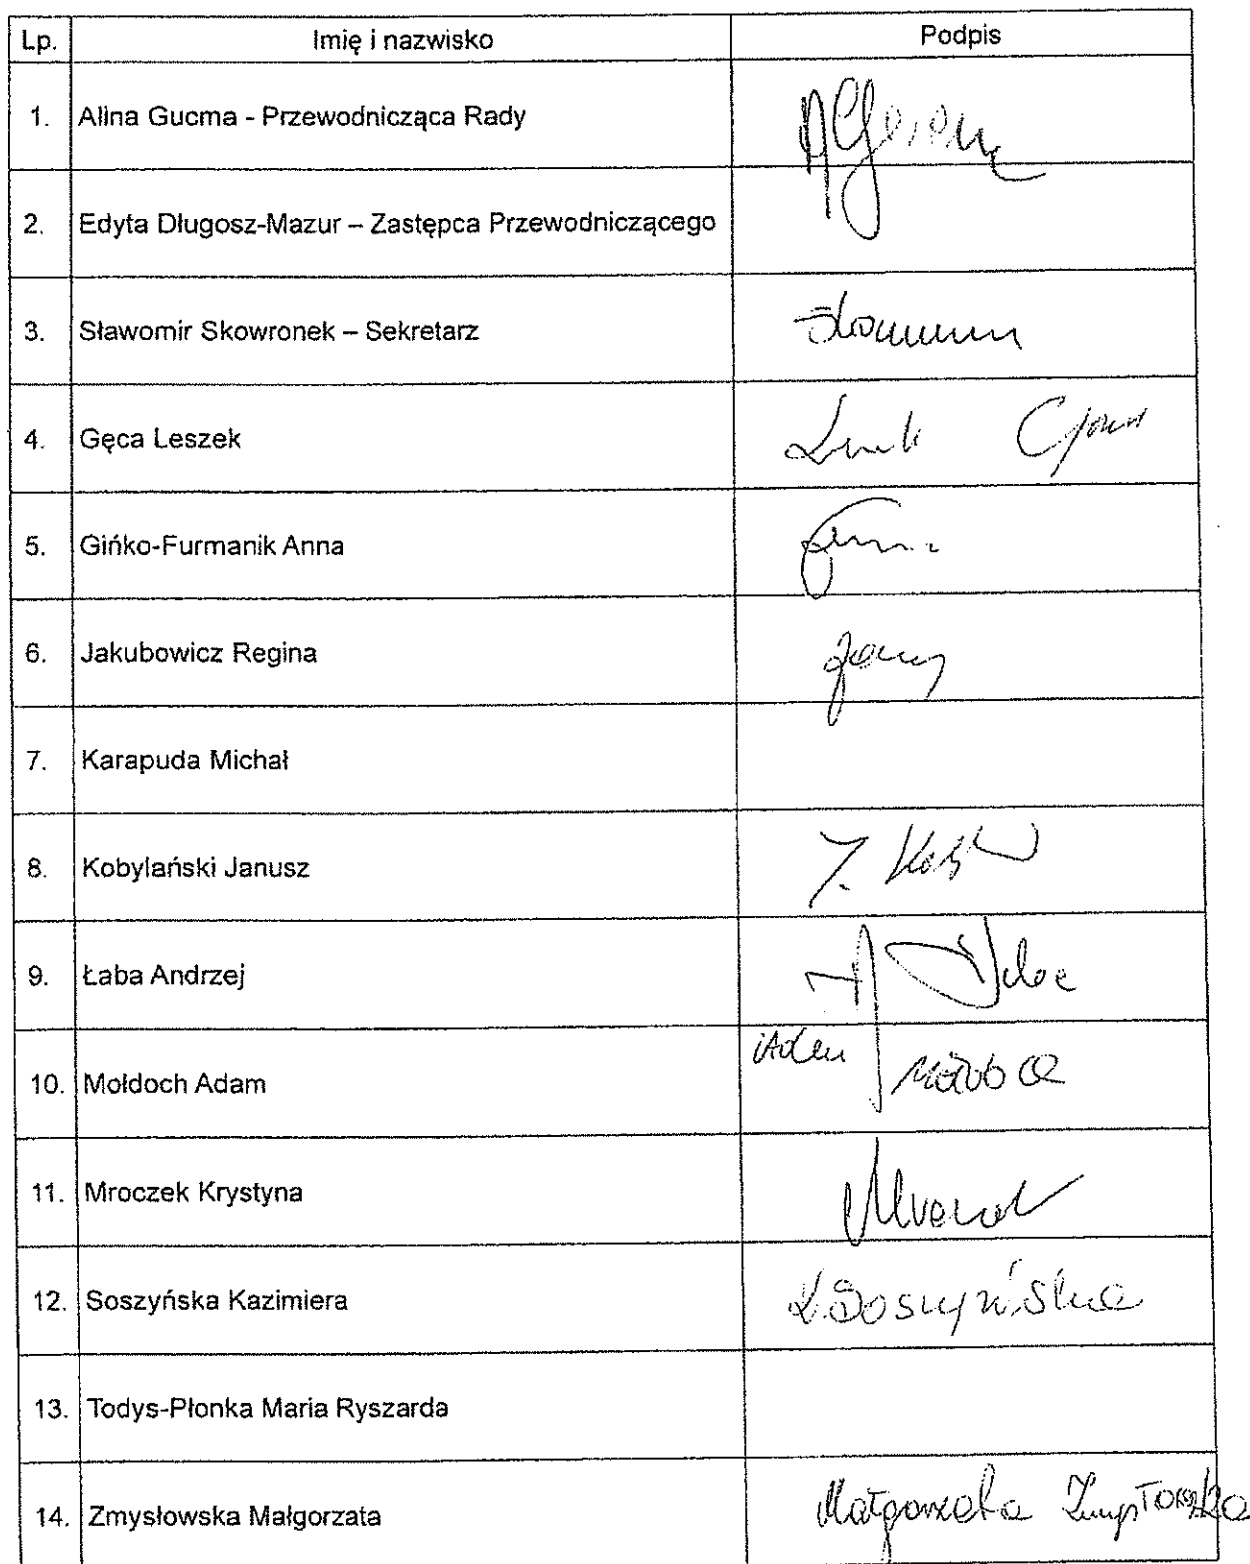 Lp. Imię i nazwisko Podpis
1. Alina Gucma - Przewodnicząca Rady
2. Edyta Długosz-Mazur – Zastępca Przewodniczącego
3. Sławomir Skowronek – Sekretarz
4. Gęca Leszek
5. Gińko-Furmanik Anna
6. Jakubowicz Regina
7. Karapuda Michał
8. Kobylański Janusz J.
9. Łaba Andrzej
10. Mołdoch Adam
11. Mroczek Krystyna
12. Soszyńska Kazimiera K. Soszyńska
13. Todys-Płonka Maria Ryszarda
14. Zmysłowska Małgorzata Małgorzata Zmysłowska